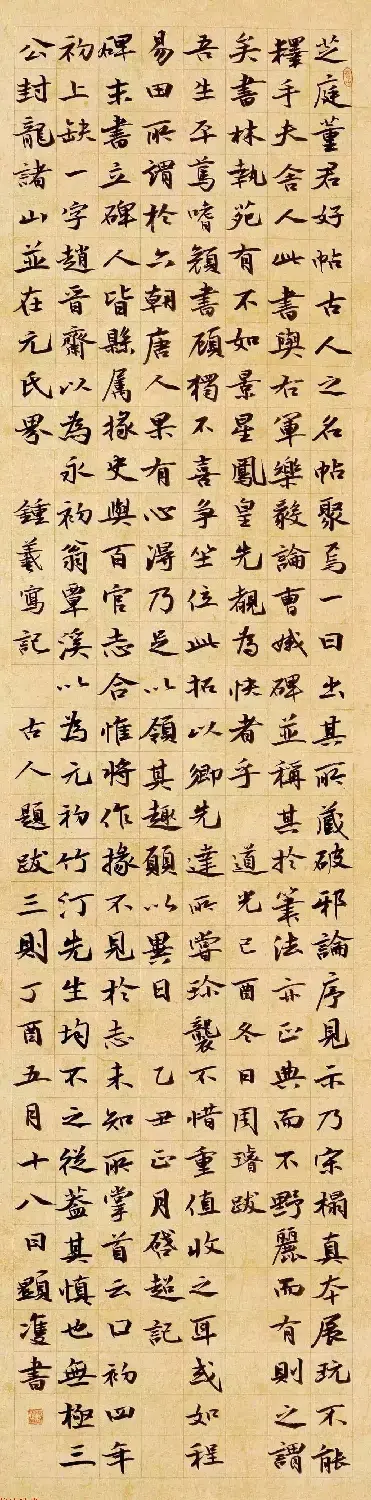 芝庭董君好帖古人之名帖聚焉一日出其所藏破邪論序見示乃宋榻真本展玩不能
釋手夫舍人此書與右軍樂毅論曹娥碑並稱其於筆法亦正典而不野麗而有則之謂
矣書林執苑有不如景星鳳皇先覩為快者乎 道光己酉冬日周璿跋
吾生平篤嗜顏書顧獨不喜爭坐位此拓以卿先達所嘗珍襲不惜重值收之耳或如程
易田所謂於六朝唐人果有心得乃足以領其趣願以異日 乙丑正月啓超記
碑末書立碑人皆縣属掾史與百官志合惟將作掾不見於志未知所掌首云口初四年
初上缺一字趙晉齋以為永初翁覃溪以為元初竹汀先生均不之從蓋其慎也無極三
公封龍諸山並在元氏界 鍾羲寫記 古人題跋三則丁酉五月十八日顯書